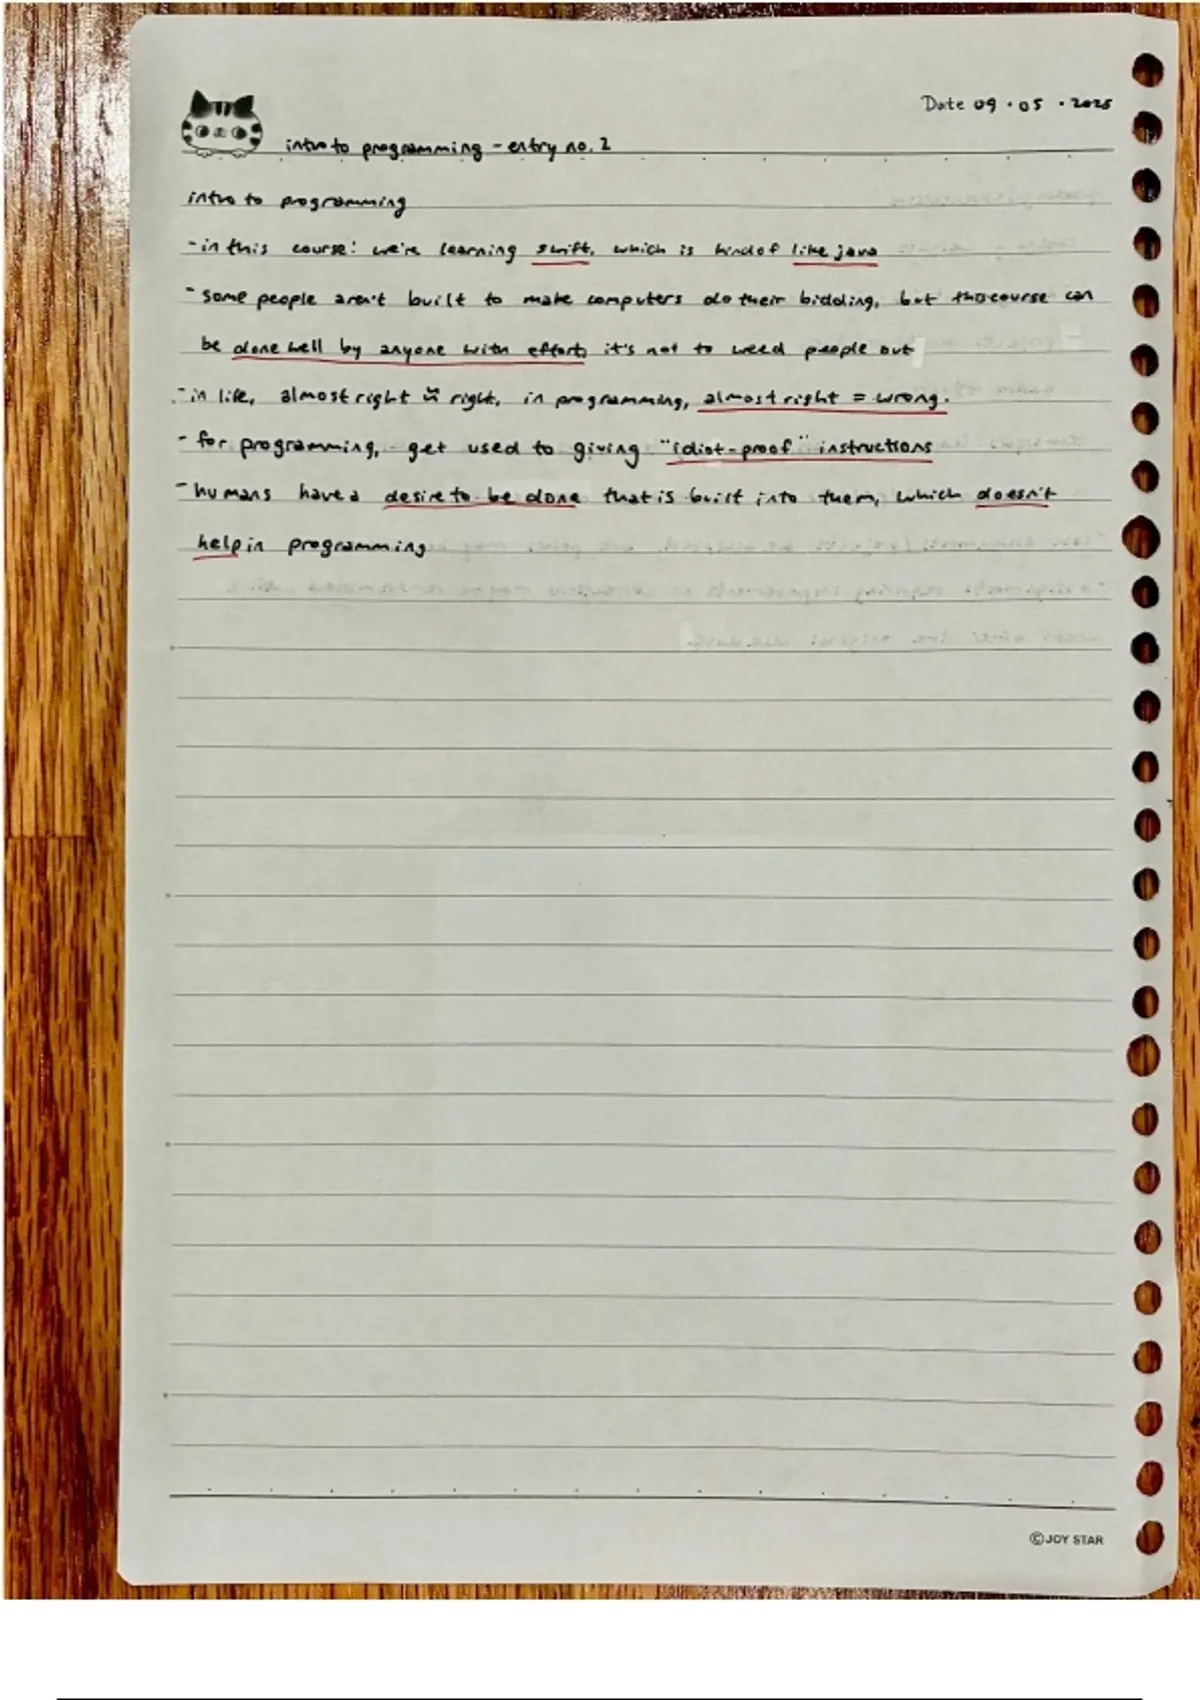 Date 09 · 05 · 2025
intro to programming - entry no. 2
intro to programming
- in this course: we're learning swift, which is kind of like java
- some people aren't built to make computers do their bidding, but this course can
be done well by anyone with effort; it's not to weed people out
- in life, almost right ≈ right, in programming, almost right = wrong.
- for programming, get used to giving "idiot-proof" instructions
- humans have a desire to be done that is built into them, which doesn't
help in programming
©JOY STAR